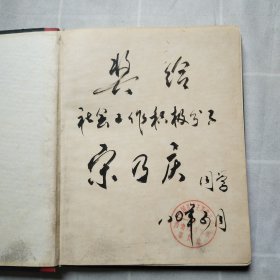 奖给
社会工作积极分子
宋乃庆
同学
八〇年五月